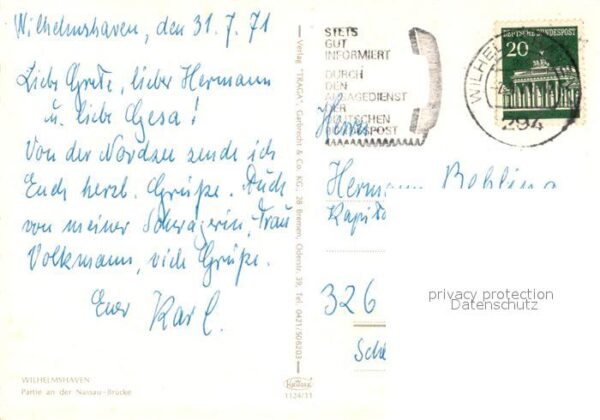 Wilhelmshaven, den 31.7.71
Liebe Grete, lieber Hermann
u. liebe Gesa!
Von der Nordsee sende ich
Euch herzl. Grüße. Auch
von meiner Schwägerin, Frau
Volkmann, viele Grüße.
Euer Karl.
WILHELMSHAVEN
Partie an der Nassau-Brücke
Verlag "TRAGA", Garbrecht & Co. KG., 28 Bremen, Oderstr. 39, Tel. 0421/508203
1124/11
STETS
GUT
INFORMIERT
DURCH
DEN
ANSAGEDIENST
DER
DEUTSCHEN
BUNDESPOST
DEUTSCHE BUNDESPOST
20
WILHELM
294
Herrn
Hermann Bohling
Kapitä
326
privacy protection
Datenschutz